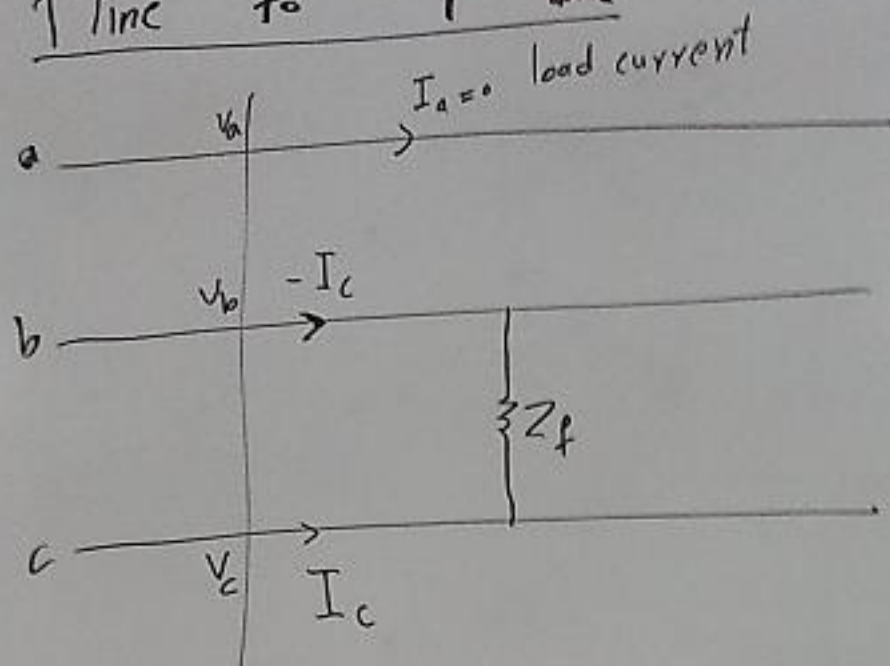 line to
I_a = 0 load current
a V_a
V_b - I_c
b
Z_f
c V_c
I_c